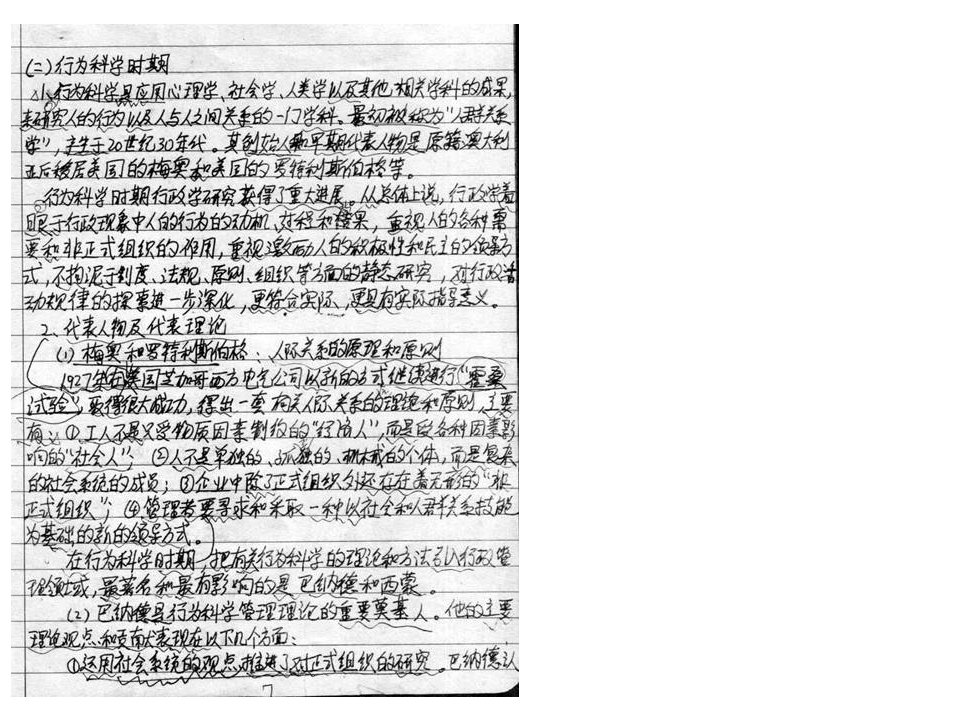 (二)行为科学时期
1、行为科学是应用心理学、社会学、人类学以及其他相关学科的成果,
来研究人的行为以及人与人之间关系的一门学科。最初被称为“人群关系
学”,产生于20世纪30年代。其创始人和早期代表人物是原籍澳大利
亚后移居美国的梅奥和美国的罗特利斯伯格等。
行为科学时期行政学研究获得了重大进展。从总体上说,行政学着
眼于行政现象中人的行为的动机、过程和结果,重视人的各种需
要和非正式组织的作用,重视激励人的积极性和民主的领导方
式,不拘泥于制度、法规、原则、组织等方面的静态研究,对行政活
动规律的探索进一步深化,更符合实际、更具有实际指导意义。
2、代表人物及代表理论
(1)梅奥和罗特利斯伯格:人际关系的原理和原则
1927年在美国芝加哥西方电气公司以新的方式继续进行“霍桑
试验”,取得很大成功,得出一套有关人际关系的理论和原则,主要
有:①工人不是只受物质因素制约的“经济人”,而是受各种因素影
响的“社会人”;②人不是单独的、孤独的、机械的个体,而是复杂
的社会系统的成员;③企业中除了正式组织外还存在着无形的“非
正式组织”;④管理者要寻求和采取一种以社会和人群关系技能
为基础的新的领导方式。
在行为科学时期,把有关行为科学的理论和方法引入行政管
理领域,最著名和最有影响的是巴纳德和西蒙。
(2)巴纳德是行为科学管理理论的重要奠基人。他的主要
理论观点和贡献表现在以下几个方面:
①运用社会系统的观点推进了对正式组织的研究。巴纳德认
7